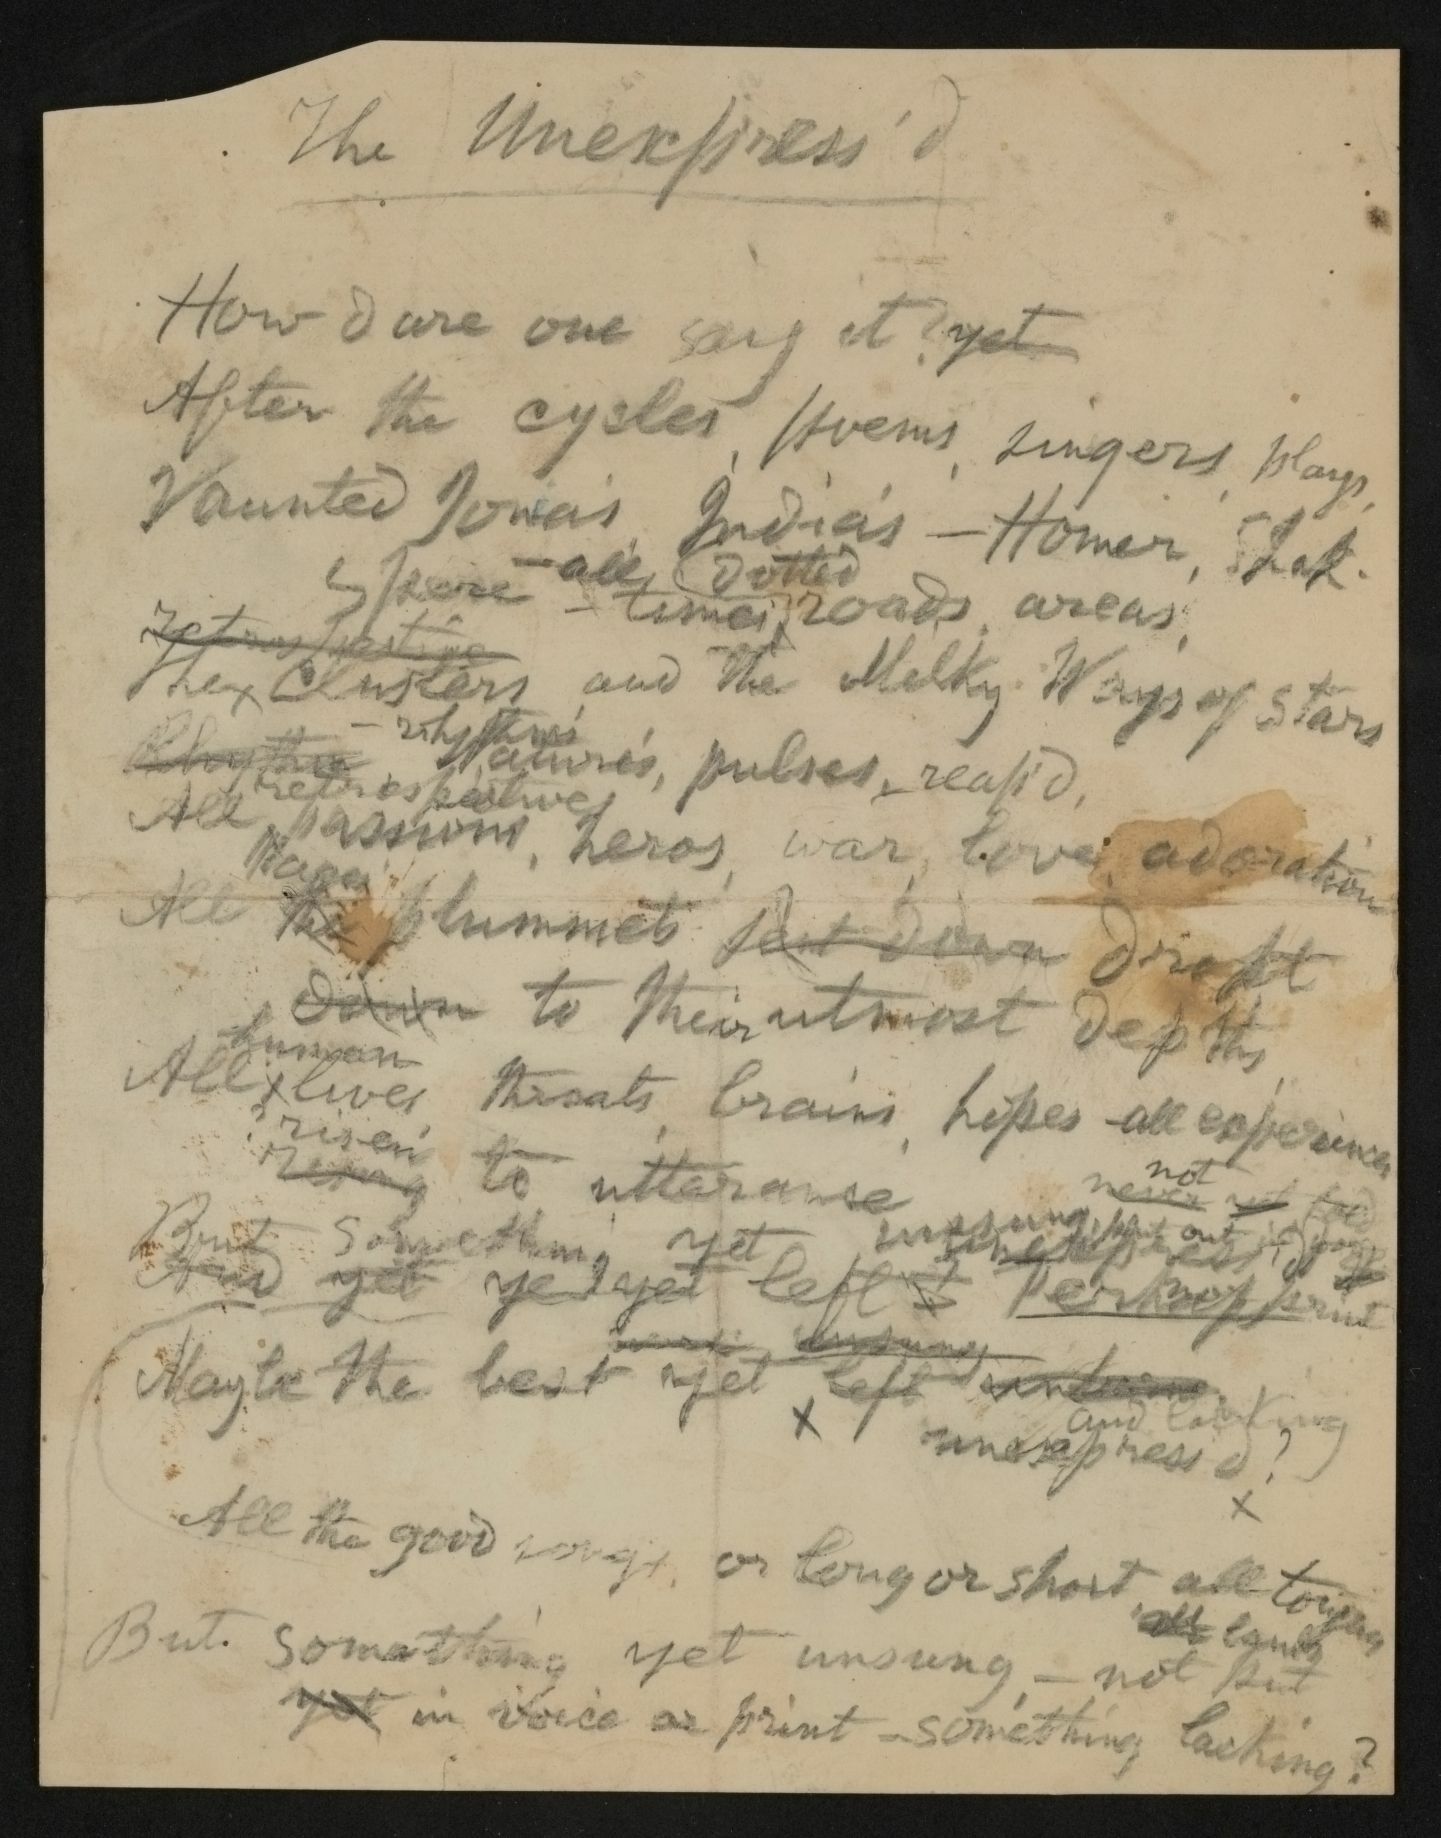 The Unexpress'd
How dare one say it? yet
After the cycles, poems, singers, plays,
Vaunted Ionia's, India's — Homer, Shak-
spere — all times, dotted roads, areas,
retrospective
The Clusters and the Milky Ways of stars
Rhythm — rhythms
Nature's, pulses, reap'd,
retrospective
All passions, heros, war, love, adoration
All the plummets let down dropt
down to their utmost depths,
human
All lives throats, brains, hopes all experiences
risen
rising to utterance
not
never yet
But something yet unsung, put out
And yet yet left unexpress'd
print
Maybe the best yet left
unsung
and lacking
unexpress'd?
All the good songs, or long or short all tongues
all lands
But something yet unsung, — not put
yet in voice or print — something lacking?